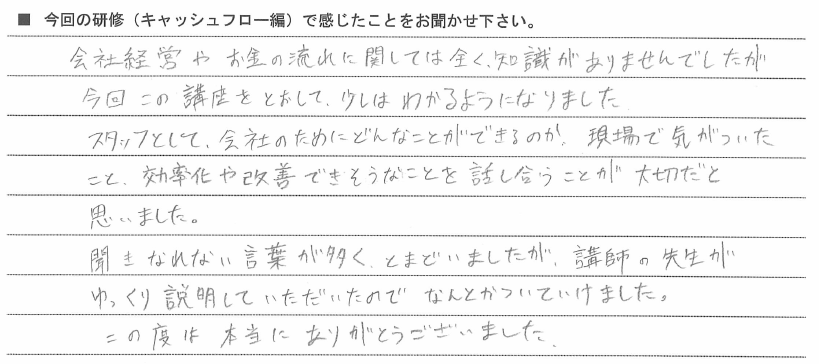 ■ 今回の研修（キャッシュフロー編）で感じたことをお聞かせ下さい。
会社経営や お金の流れに関しては全く、知識がありませんでしたが
今回 この講座をとおして、少しは わかるようになりました
スタッフとして、会社のためにどんなことができるのか、現場で気がついた
こと、効率化や改善できそうなことを話し合うことが 大切だと
思いました。
聞きなれない言葉が多く、とまどいましたが、講師の先生が
ゆっくり説明していただいたので なんとかついていけました。
この度は 本当に ありがとうございました、